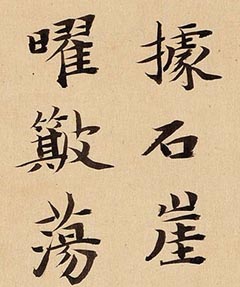 據石崖
曜簸蕩